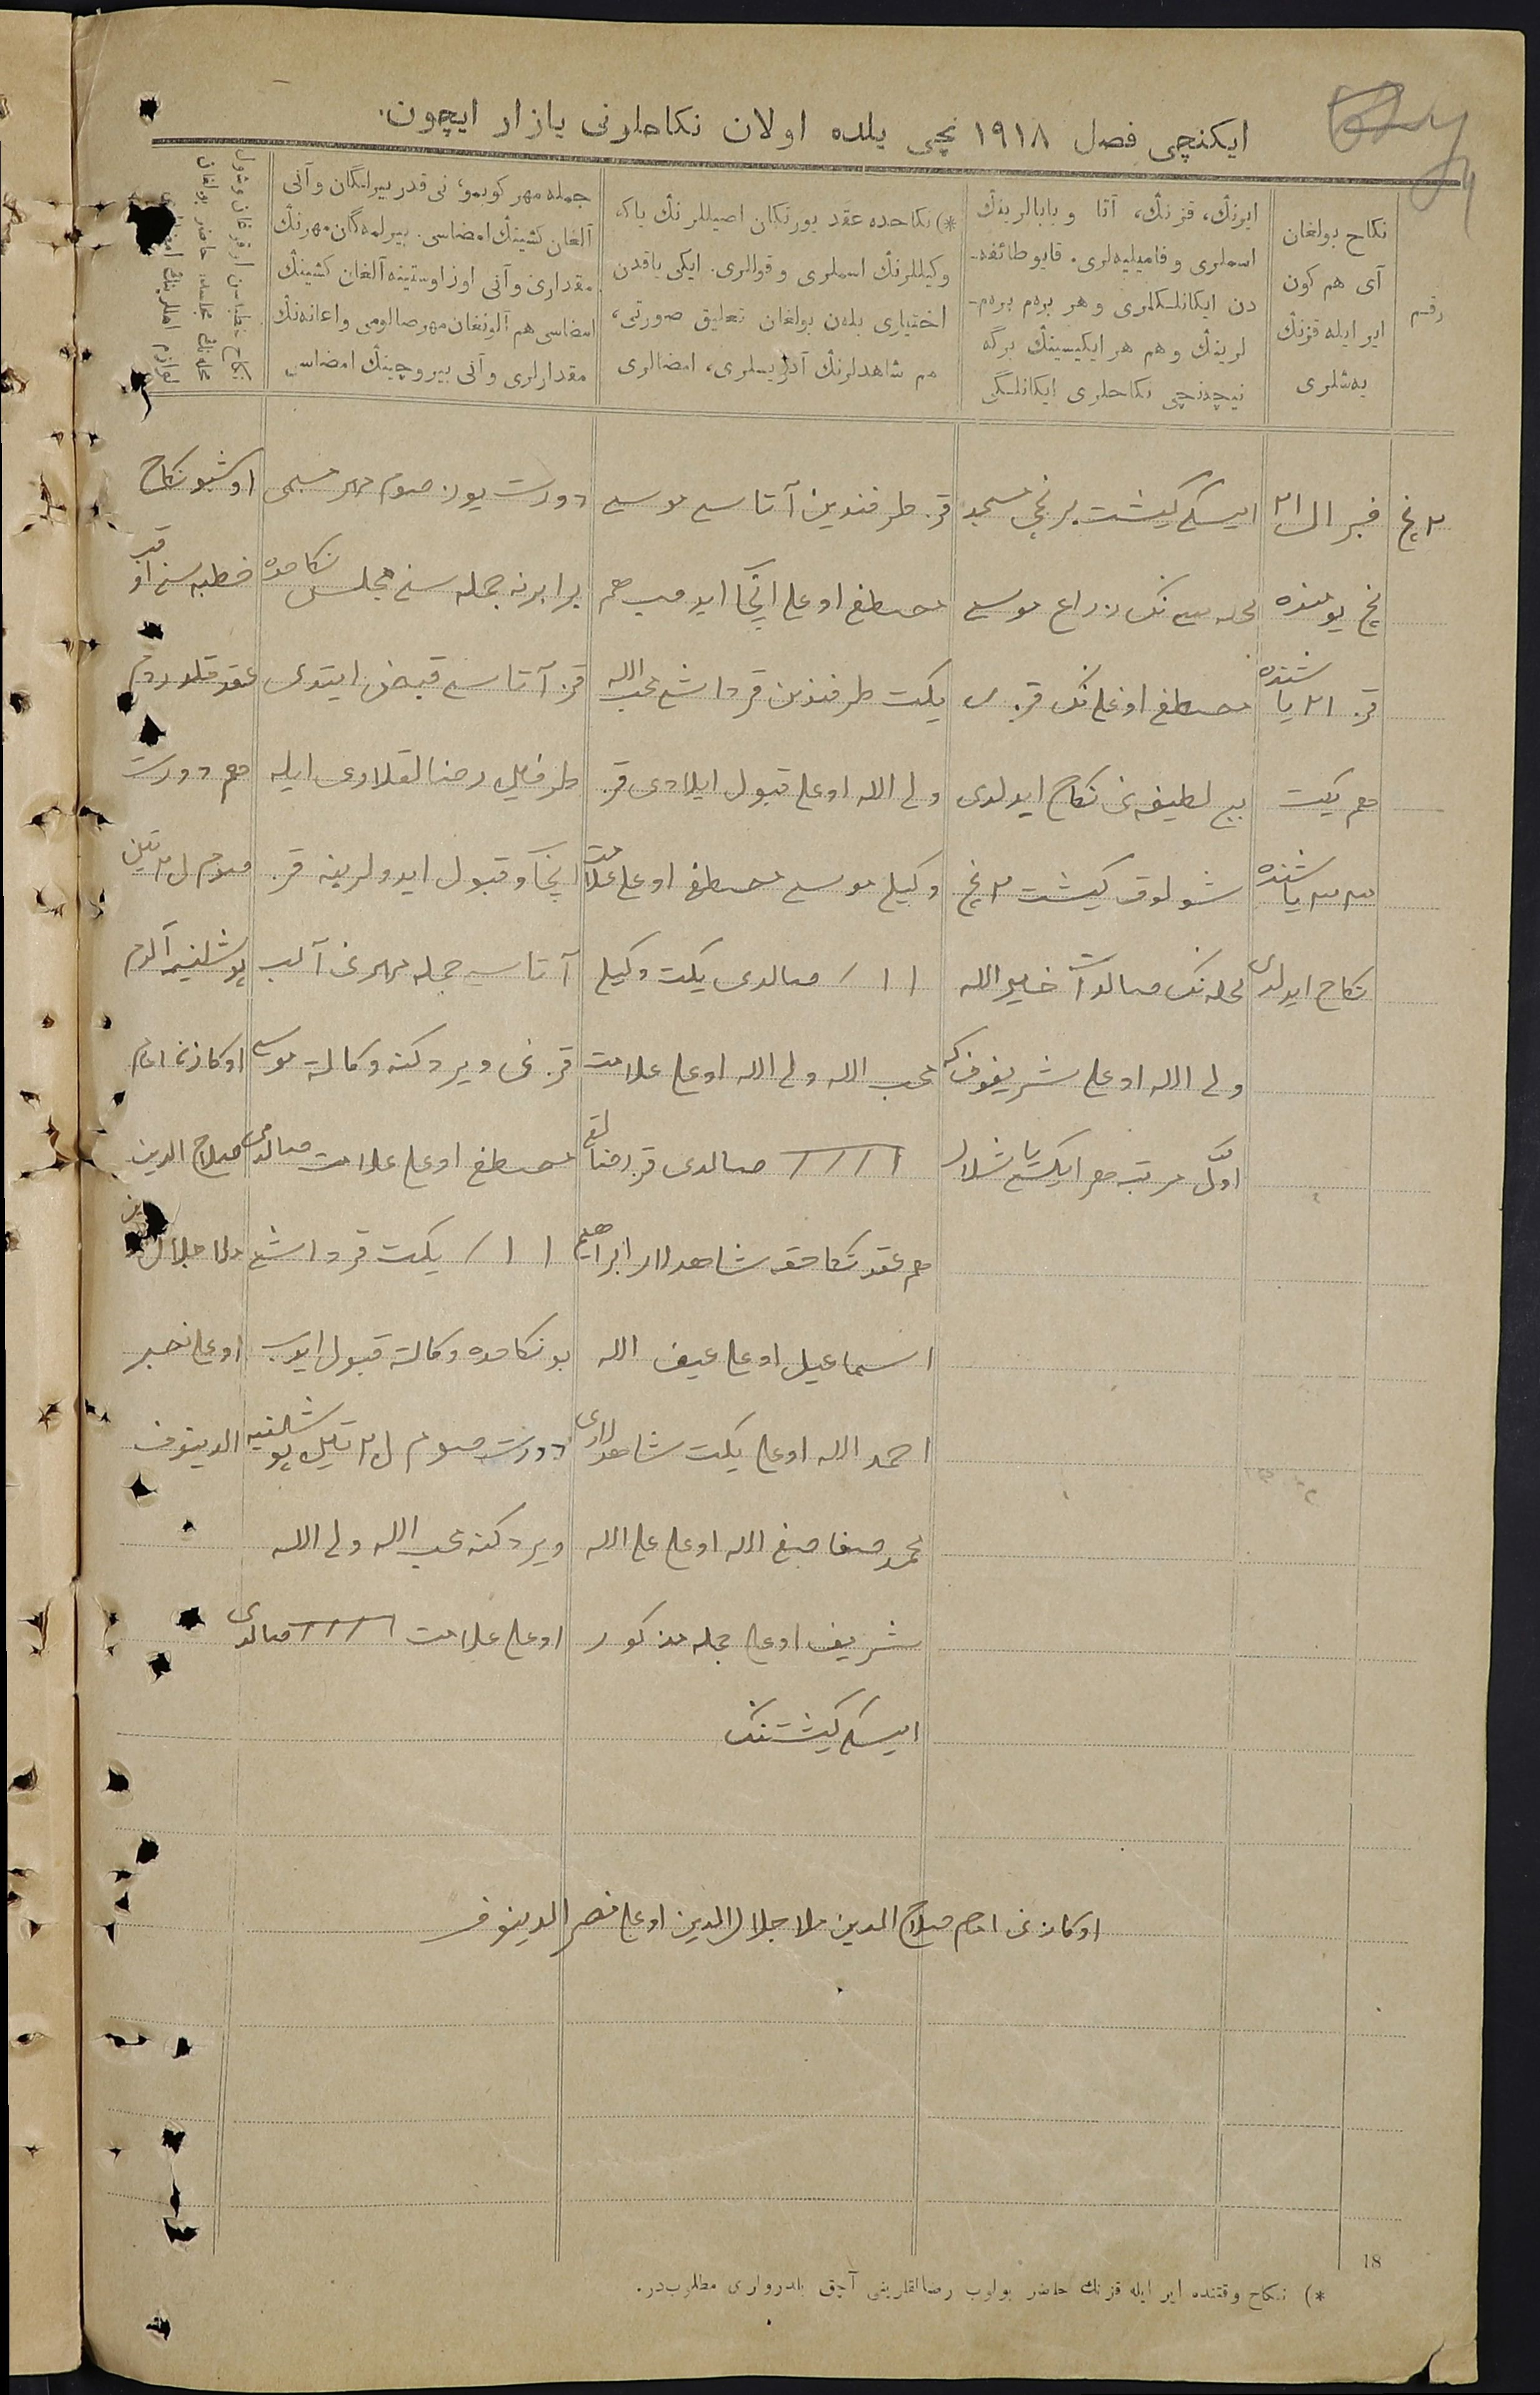 ایکنچی فصل ۱۹۱۸ نچی یلده اولان نکاحلرنی یازار ایچون.
رقم
نکاح بولغان
آی هم کون
ایر ایله قزنڭ
یەشلری
ایرنڭ، قزنڭ، آتا و بابالرینڭ
اسملری و فامیلیەلری. قایو طائفه-
دن ایکانلکلری و هر برم برم-
لرینڭ و هم هر ایکیسینڭ برگه
نیچەنچی نکاحلری ایکانلگی
*) نکاحده عقد یورتکان اصیللرنڭ یاکه
وکیللرنڭ اسملری و قواللری. ایکی یاقدن
اختیاری بلەن بولغان تعلیق صورتی،
هم شاهدلرنڭ آدریسلری، امضالری
جمله مهر کوبمو، نی قدر بیرلگان و آنی
آلغان کشینڭ امضاسی. بیرلمەگان مهرنڭ
مقدارین و آنی اوز اوستینه آلغان کشینڭ
امضاسی هم آلونغان مهر صالومی و اعانەنڭ
مقدارلری و آنی بیروچینڭ امضاسی
۲ نچی
فبرال ۲۱
نچی یومنده
قز ۲۱ یاشنده
هم یکت
۲۳ یاشنده
نکاح ایدلدی
ایسکی کیشت برنچی مسجد
محله سی نڭ زراع موسی
مصطفی اوغلی نڭ قزی
بی بی لطیفه نی نکاح ایدلدی
شولوق کیشت ۲ نچی
محله نڭ صالدات خیرالله
ولی الله اوغلی شریفوف که
اوّل مرتبه هر ایکیسی یاشلار
قز طرفندین آتاسی موسی
مصطفی اوغلی ایجاب ایدیب هم
یکت طرفندین قرداشی محب الله
ولی الله اوغلی قبول ایلادی قز
وکیلی موسی مصطفی اوغلی علامت
ااا صالدی یکت وکیلی
محب الله ولی الله اوغلی علامت
صالدی قز رضالقی
هم عقد نکاحقه شاهدلار ابراهیم
اسماعیل اوغلی عیف الله
احمد الله اوغلی یکت شاهدلاری
محمد صفا صبغ الله اوغلی علی الله
شریف اوغلی جمله مذکور
ایسکی کیشتنڭ
دورت یوز صوم مهر مسمی
برابرنه جمله سی مجلس نکاحده
قز آتاسی قبض ایتدی
طرفین رضالقلاری ایله
ایجاب و قبول ایدولرینه قز
آتاسی جمله مهرنی آلب
قزنی ویردکنه وکالة موسی
مصطفی اوغلی علامت صالدی
ااا یکت قرداشی
بو نکاحده وکالة قبول ایدب
دورت صوم ل ۲ تین پوشلنیه
ویردکنه محب الله ولی الله
اوغلی علامت صالدی
اوشبو نکاح
خطبه سنی اوقب
عقد قلدردم
هم دورت
صوم ل ۲ تین
پوشلنیه آلدم
اوکازنی امام
صلاح الدین
ملا جلال الدین
اوغلی نصر
الدینوف
اوکازنی امام صلاح الدین ملا جلال الدین اوغلی نصر الدینوف
18
*) نکاح وقتنده ایر ایله قزنڭ حاضر بولوب رضالقلرینی آچق بلدرولری مطلوبدر.